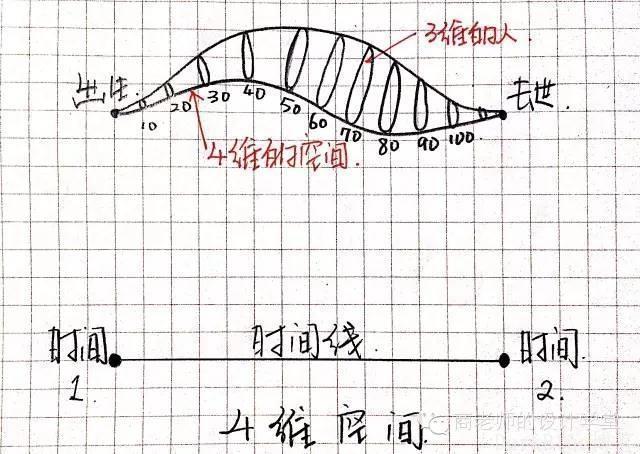 3维的人
出生
去世
10 20 30 40 50 60 70 80 90 100
4维的空间
时间1
时间线
时间2
4维空间
商老师的设计学堂